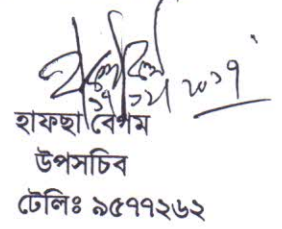 ২০১৭
হাফছা বেগম
উপসচিব
টেলিঃ ৯৫৭৭২৬২